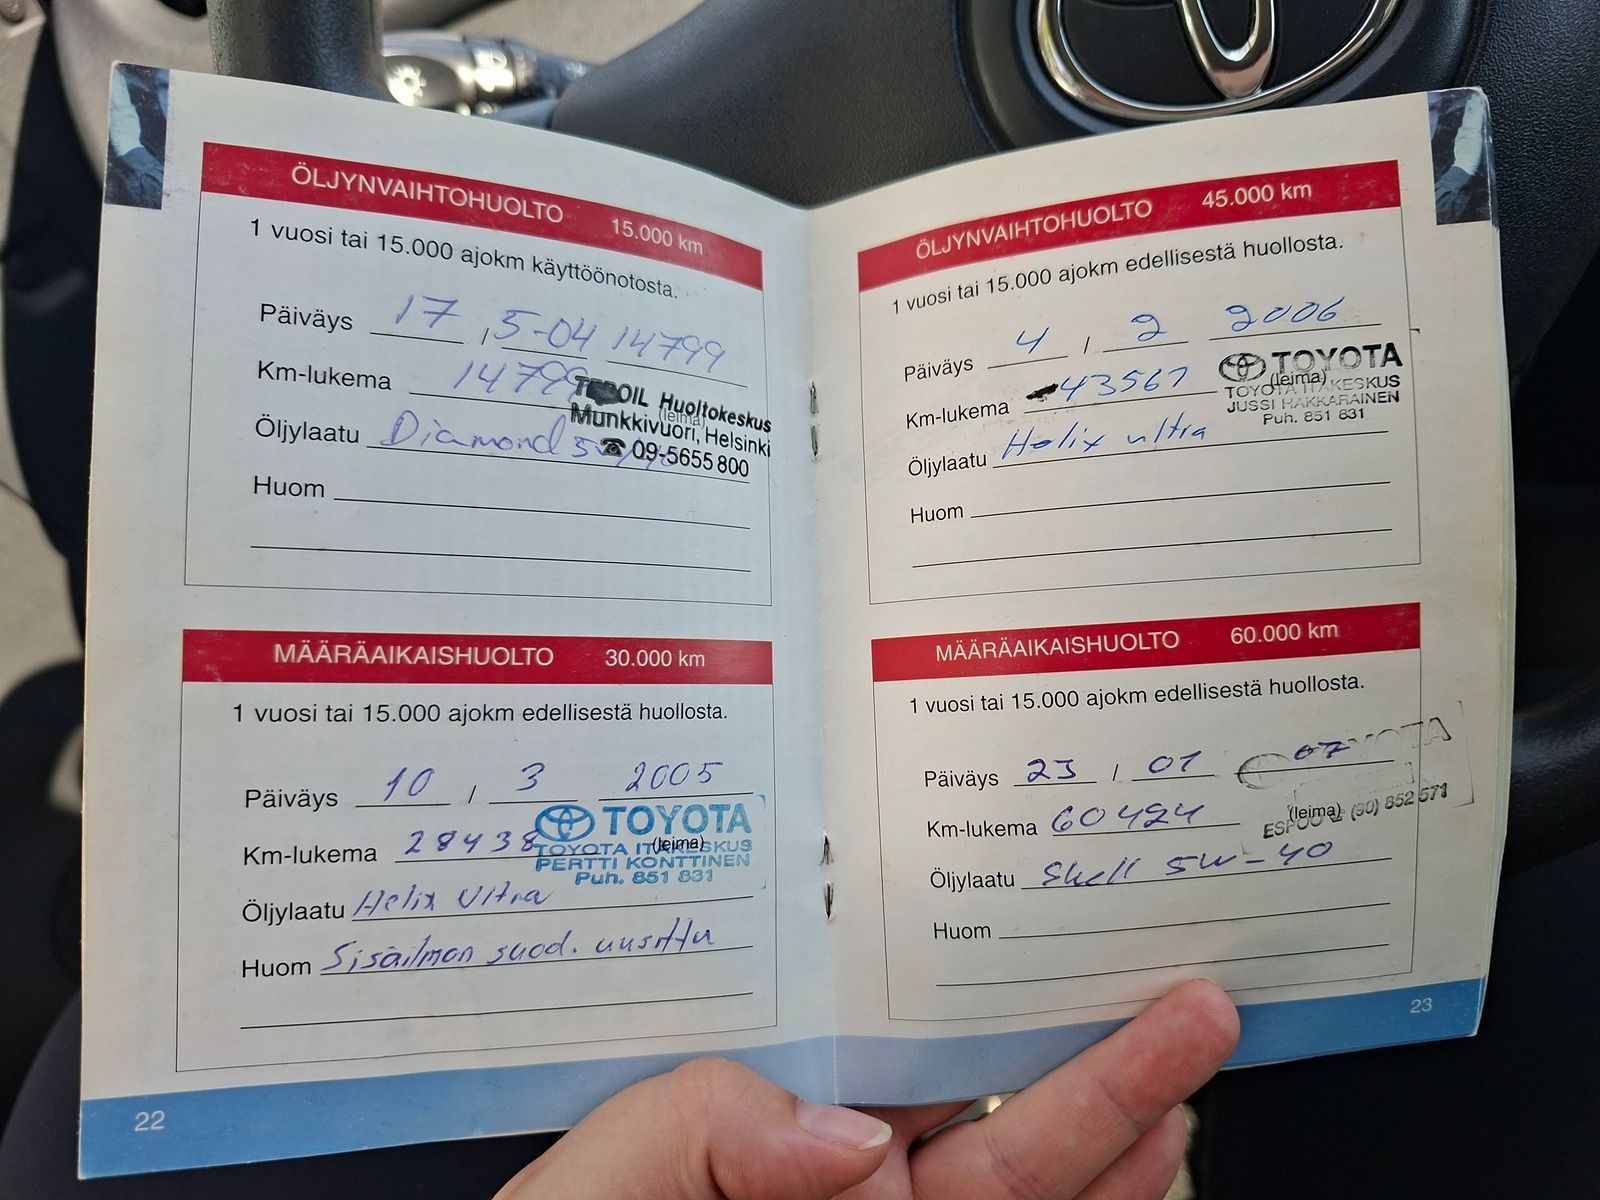 ÖLJYNVAIHTOHUOLTO 15.000 km
1 vuosi tai 15.000 ajokm käyttöönotosta.
Päiväys 17 , 5-04 14799
Km-lukema 14799
Öljylaatu Diamond
Huom
TEBOIL Huoltokeskus
(leima)
Munkkivuori, Helsinki
☎ 09-5655 800
MÄÄRÄAIKAISHUOLTO 30.000 km
1 vuosi tai 15.000 ajokm edellisestä huollosta.
Päiväys 10 / 3 2005
Km-lukema 28438
Öljylaatu Helix Ultra
Huom Sisäilman suod. uusittu
TOYOTA
(leima)
TOYOTA ITÄKESKUS
PERTTI KONTTINEN
Puh. 851 831
22
ÖLJYNVAIHTOHUOLTO 45.000 km
1 vuosi tai 15.000 ajokm edellisestä huollosta.
Päiväys 4 / 2 2006
Km-lukema 43567
Öljylaatu Helix ultra
Huom
TOYOTA
(leima)
TOYOTA ITÄKESKUS
JUSSI HAKKARAINEN
Puh. 851 831
MÄÄRÄAIKAISHUOLTO 60.000 km
1 vuosi tai 15.000 ajokm edellisestä huollosta.
Päiväys 23 / 01 07
Km-lukema 60424
Öljylaatu Shell 5W-40
Huom
TOYOTA
(leima)
ESPOO (90) 852 571
23